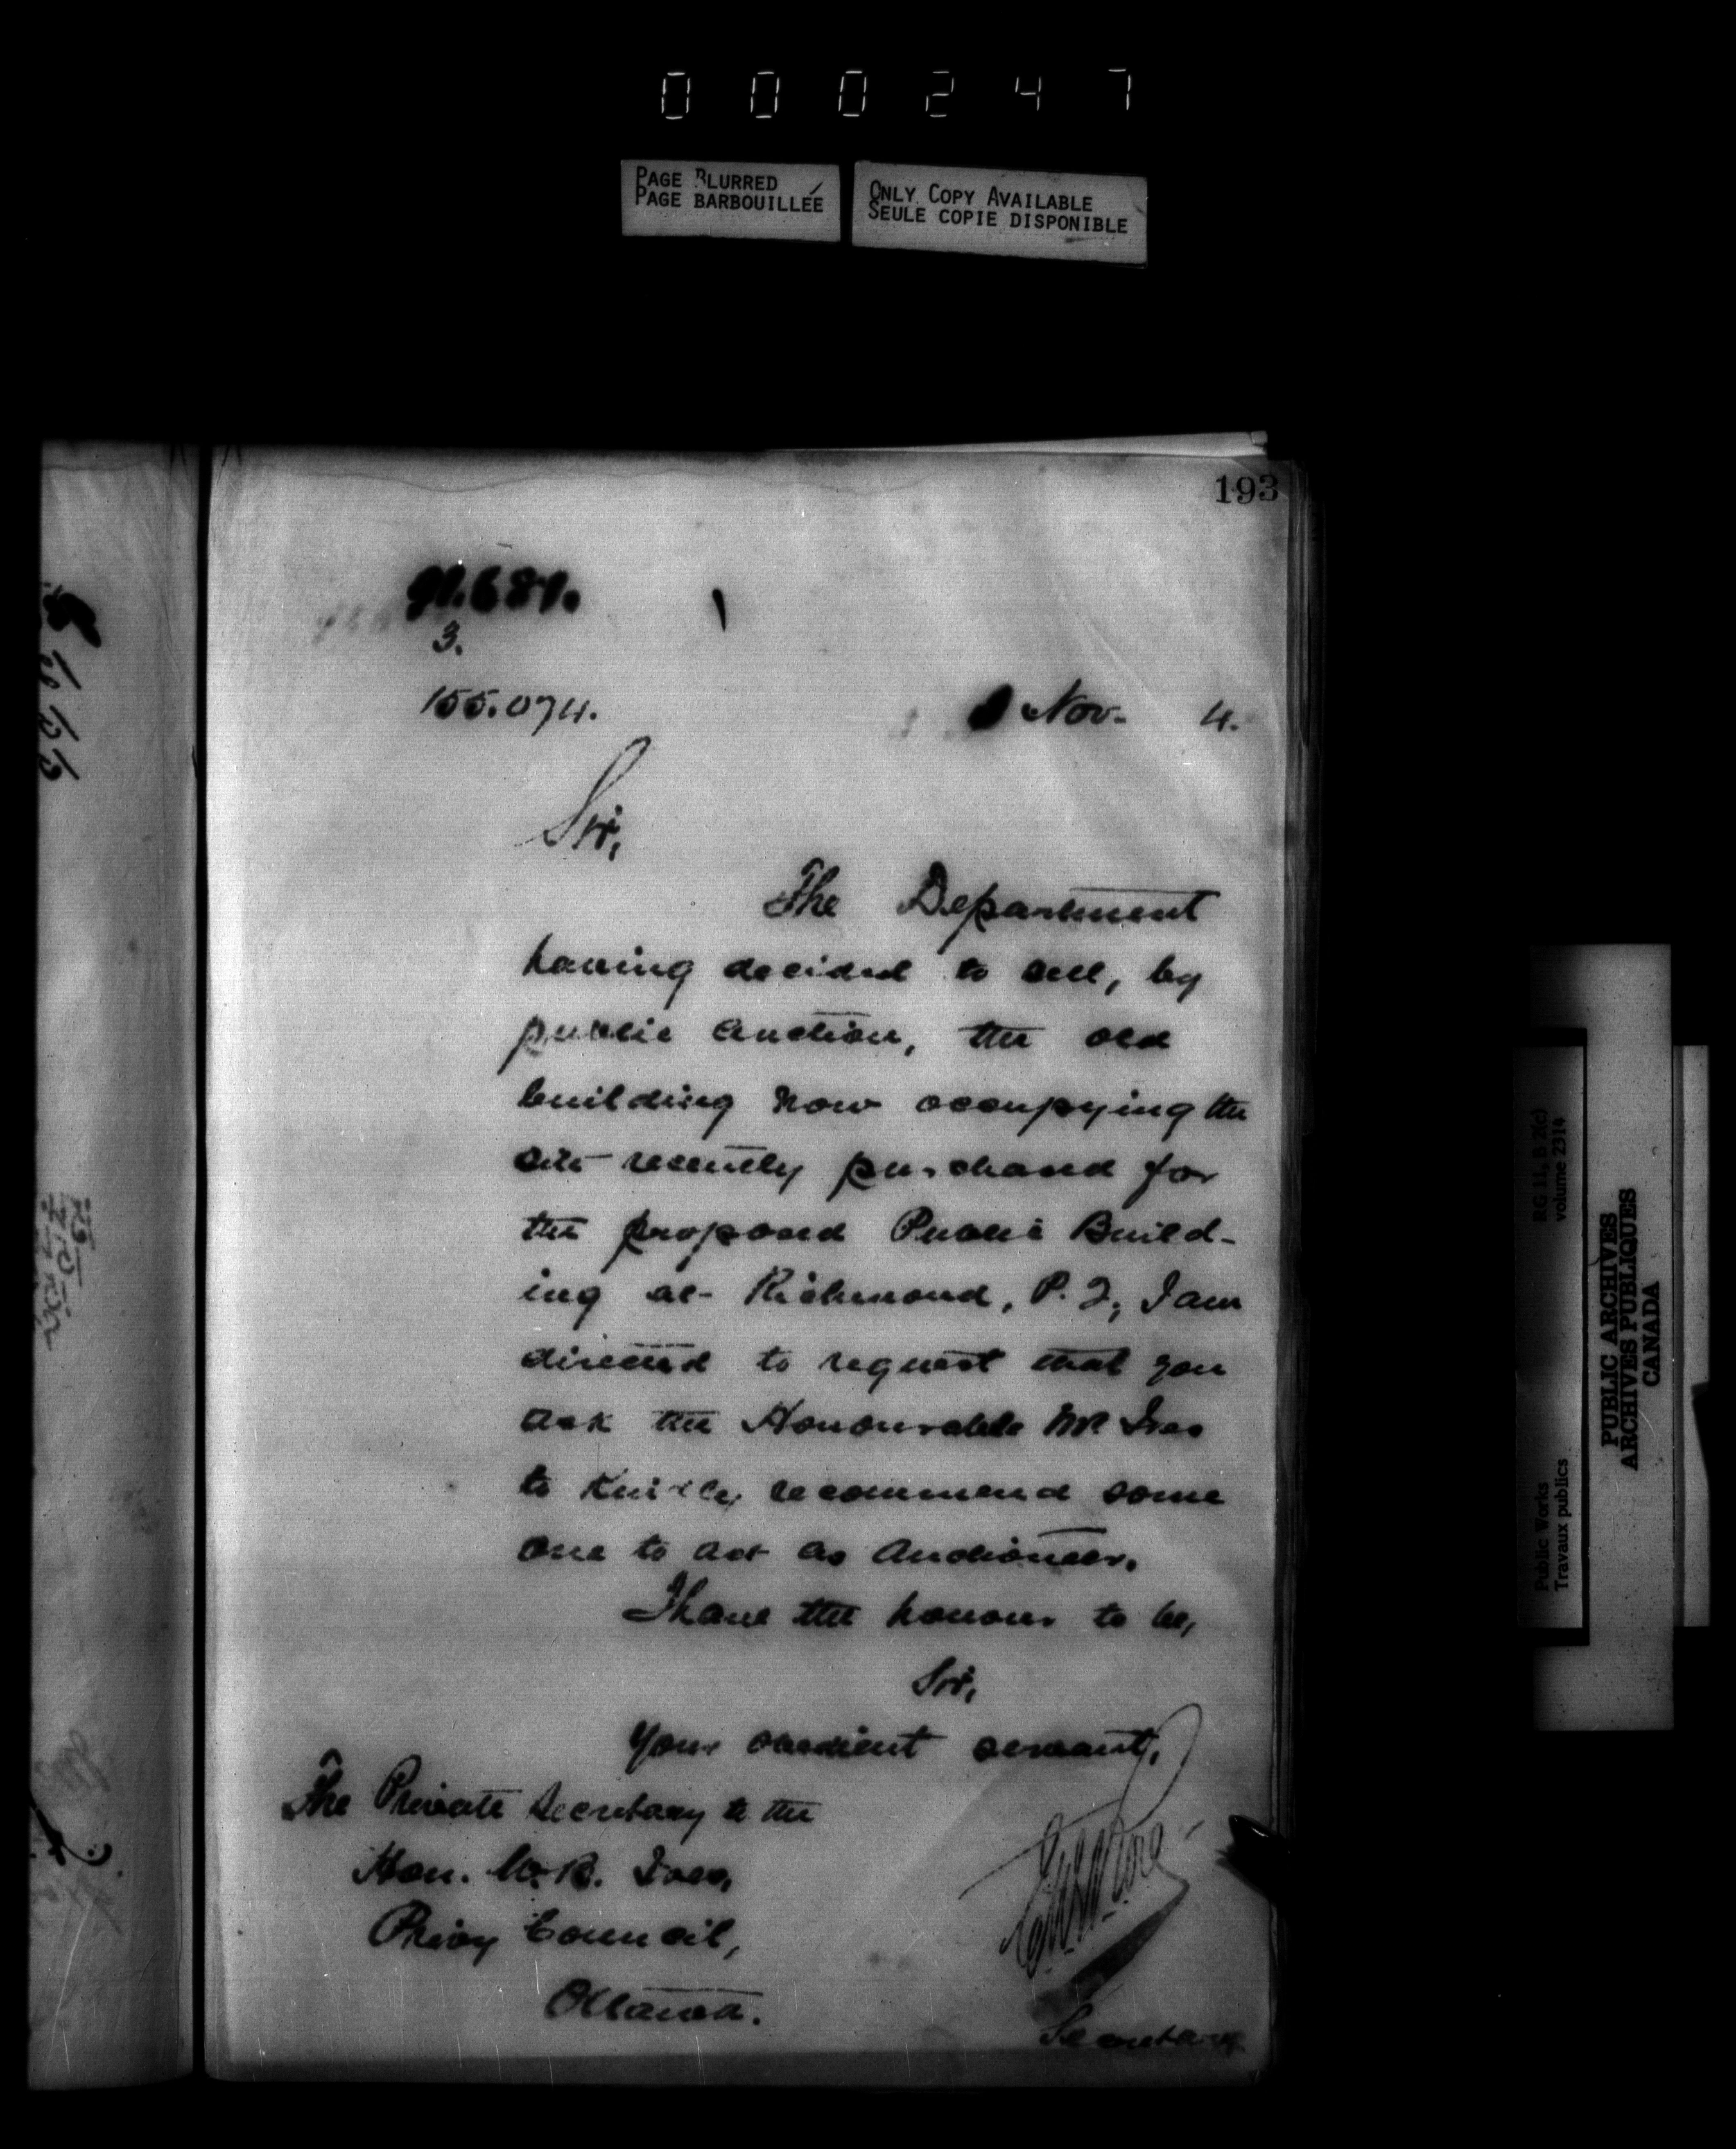 000247
PAGE BLURRED
PAGE BARBOUILLÉE
ONLY COPY AVAILABLE
SEULE COPIE DISPONIBLE
193
3.
155.074.
Nov. 4.
Sir,
The Department
having decided to sell, by
public auction, the old
building now occupying the
site recently purchased for
the proposed Public Build-
ing at Richmond, P. Q., I am
directed to request that you
ask the Honourable Mr Ives
to kindly recommend some
one to act as Auctioneer.
I have the honour to be,
Sir,
Your obedient servant,
The Private Secretary to the
Hon. W. B. Ives,
Privy Council,
Ottawa.
Secretary
Public Works
Travaux publics
RG 11, B 2(c)
volume 2314
PUBLIC ARCHIVES
ARCHIVES PUBLIQUES
CANADA